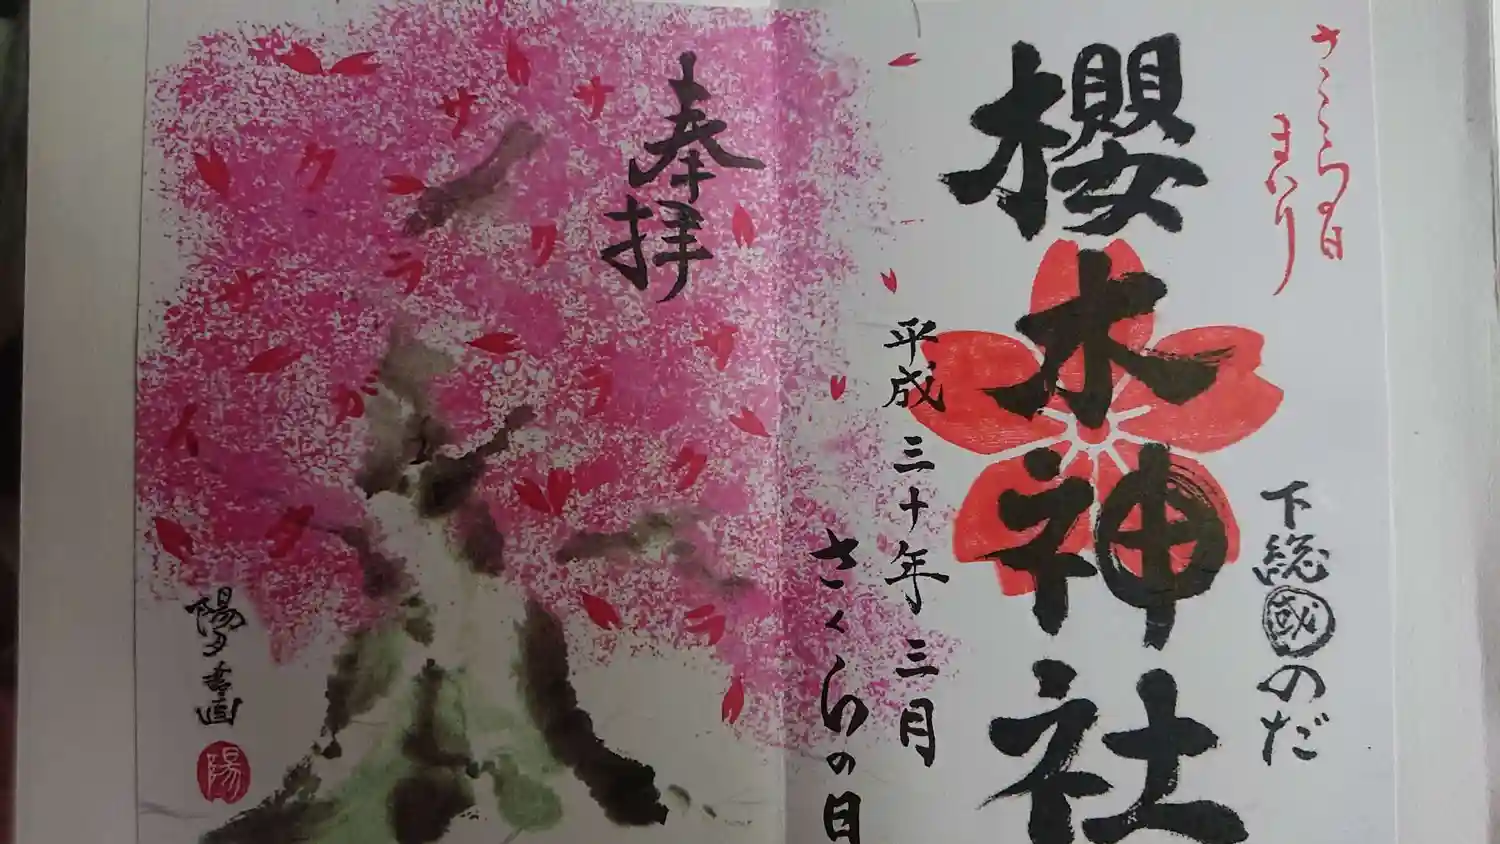 さくらの日
まいり
櫻木神社
下総國のだ
平成三十年三月
さくらの日
奉拝
サ
サ
ク
ク
ラ
サ
が
ク
陽夕書画
陽